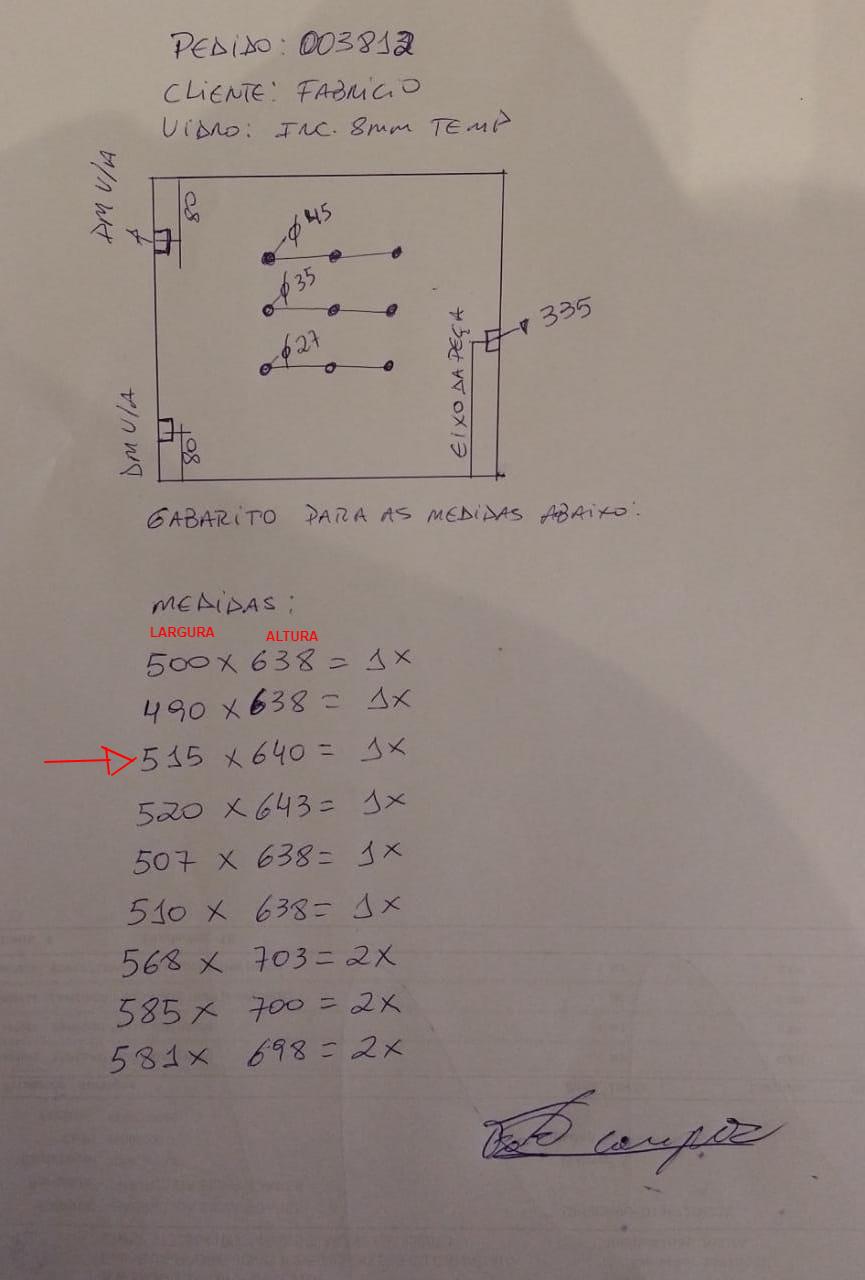 PEDIDO: 003812
CLIENTE: FABRICIO
VIDRO: INC. 8mm TEMP
DM V/A
80
φ45
φ35
335
φ27
EIXO DA PEÇA
DM V/A
80
GABARITO PARA AS MEDIDAS ABAIXO:
MEDIDAS:
LARGURA ALTURA
500 x 638 = 1x
490 x 638 = 1x
515 x 640 = 1x
520 x 643 = 1x
507 x 638 = 1x
510 x 638 = 1x
568 x 703 = 2x
585 x 700 = 2x
581 x 698 = 2x